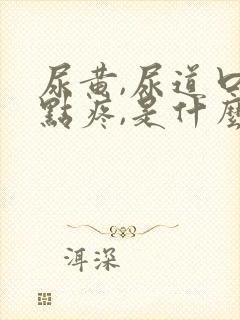 尿黄,尿道口
點疼,是什麼
洱深